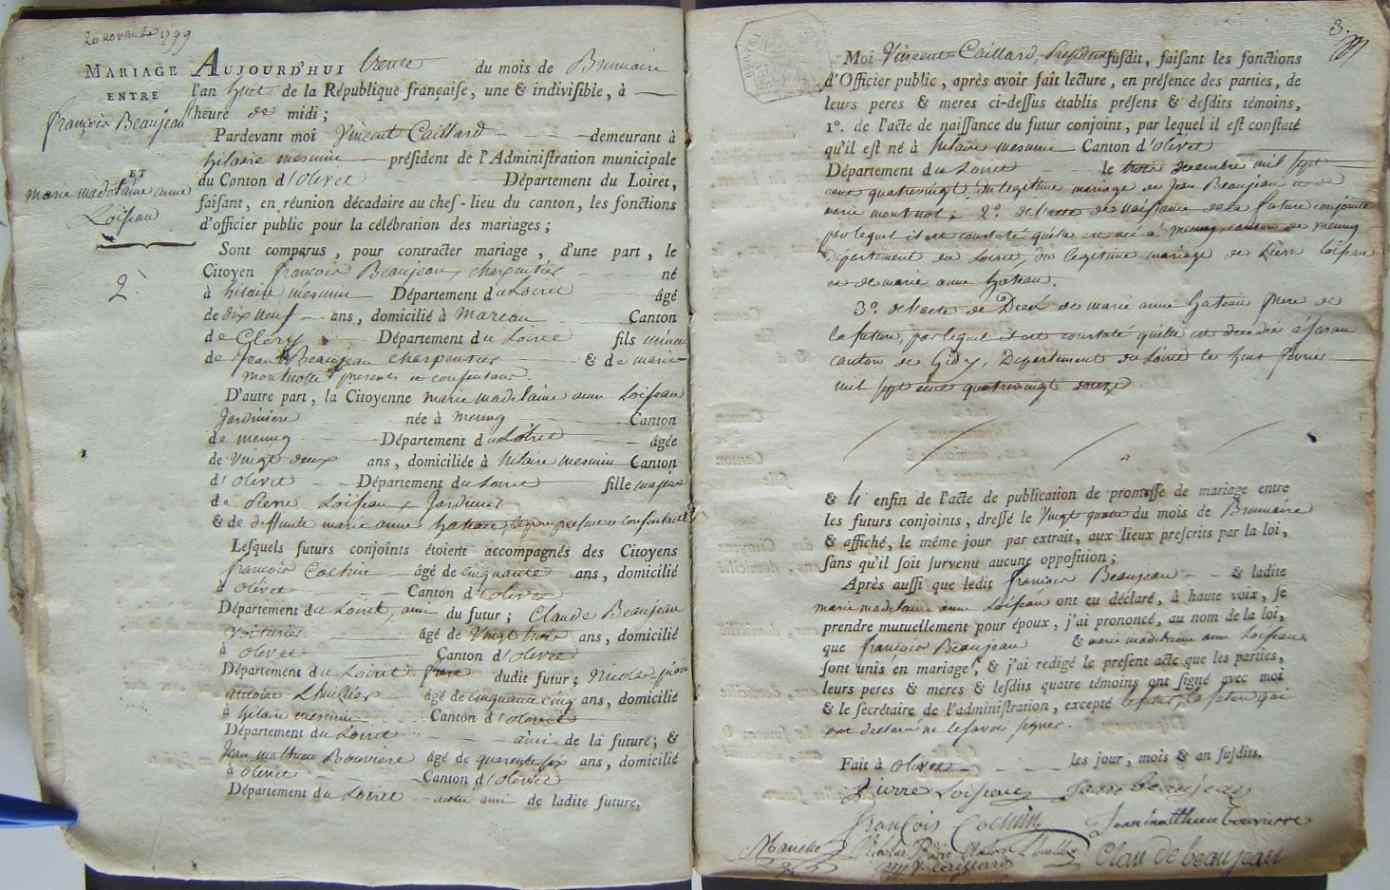 20 novembre 1799
MARIAGE
ENTRE
françois Beaujean
ET
marie madelaine anne
Loiseau
2
AUJOURD'HUI trente du mois de Brumaire
l'an huit de la République françaiſe, une & indiviſible, à
heure de midi;
Pardevant moi Vincent Caillard demeurant à
hilaire mesmin préſident de l'Adminiſtration municipale
du Canton d'olivet Département du Loiret,
faiſant, en réunion décadaire au chef-lieu du canton, les fonctions
d'officier public pour la célébration des mariages;
Sont comparus, pour contracter mariage, d'une part, le
Citoyen françois Beaujean charpentier né
à hilaire mesmin Département du Loiret âgé
de dix neuf ans, domicilié à mareau Canton
de Clery Département du Loiret fils mineur
de Jean Beaujean charpentier & de marie
presents et consentans.
D'autre part, la Citoyenne marie madelaine anne Loiseau
Jardiniere née à meung Canton
de meung Département du Loiret âgée
de vingt deux ans, domiciliée à hilaire mesmin Canton
d'olivet Département du Loiret fille majeure
de Pierre Loiseau Jardinier
& de deffunte marie anne hateau, le père présent et consentant
Leſquels futurs conjoints étoient accompagnés des Citoyens
françois Cochin âgé de cinquante ans, domicilié
à olivet Canton d'olivet
Département du Loiret, ami du futur; Claude Beaujean
voiturier âgé de vingt trois ans, domicilié
à olivet Canton d'olivet
Département du Loiret frere dudit futur; Nicolas
âgé de cinquante cinq ans, domicilié
à hilaire mesmin Canton d'olivet
Département du Loiret ami de la future; &
Jean mathieu Bouviere âgé de quarente six ans, domicilié
à olivet Canton d'olivet
Département du Loiret ami de ladite future,
3
Moi Vincent Caillard ſuſdit, faiſant les fonctions
d'Officier public, après avoir fait lecture, en préſence des parties, de
leurs peres & meres ci-deſſus établis préſens & deſdits témoins,
1°. de l'acte de naiſſance du futur conjoint, par lequel il eſt conſtaté
qu'il eſt né à hilaire mesmin Canton d'olivet
Département du Loiret le decembre mil sept
cent quatrevingt du legitime mariage de Jean Beaujean et de
marie 2°. de l'acte de naissance de la future conjointe
par lequel il est constaté qu'elle est née à meung canton de meung
département du Loiret, du legitime mariage de Pierre Loiseau
et de marie anne hateau.
3°. de l'acte de Decé de marie anne hateau mere de
la future, par lequel il est constaté qu'elle est décédée à Saran
canton de Gidy, Département du Loiret le huit fevrier
mil sept cent quatrevingt douze
& 4° enfin de l'acte de publication de promeſſe de mariage entre
les futurs conjoints, dreſſé le vingt quatre du mois de Brumaire
& affiché, le même jour par extrait, aux lieux preſcrits par la loi,
ſans qu'il ſoit ſurvenu aucune oppoſition;
Après auſſi que ledit françois Beaujean & ladite
marie madelaine anne Loiseau ont eu déclaré, à haute voix, ſe
prendre mutuellement pour époux, j'ai prononcé, au nom de la loi,
que françois Beaujean & marie madelaine anne Loiseau
ſont unis en mariage, & j'ai rédigé le preſent acte que les parties,
leurs peres & meres & leſdits quatre témoins ont ſigné avec moi
& le ſecrétaire de l'adminiſtration, excepté qui
ont declaré ne le savoir signer.
Fait à olivet les jour, mois & an ſuſdits.
Pierre Loiseau Jean beaujean
françois Cochin Jean matthieu bouviere
Claude beaujean